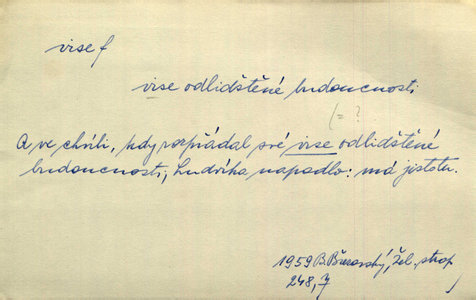 vise f
vise odlidštěné budoucnosti
(= ?
A ve chvíli, kdy rozpřádal své vise odlidštěné
budoucnosti, Ludvíka napadlo: má jistotu.
1959 B. Březovský, Žel. strop
248,7